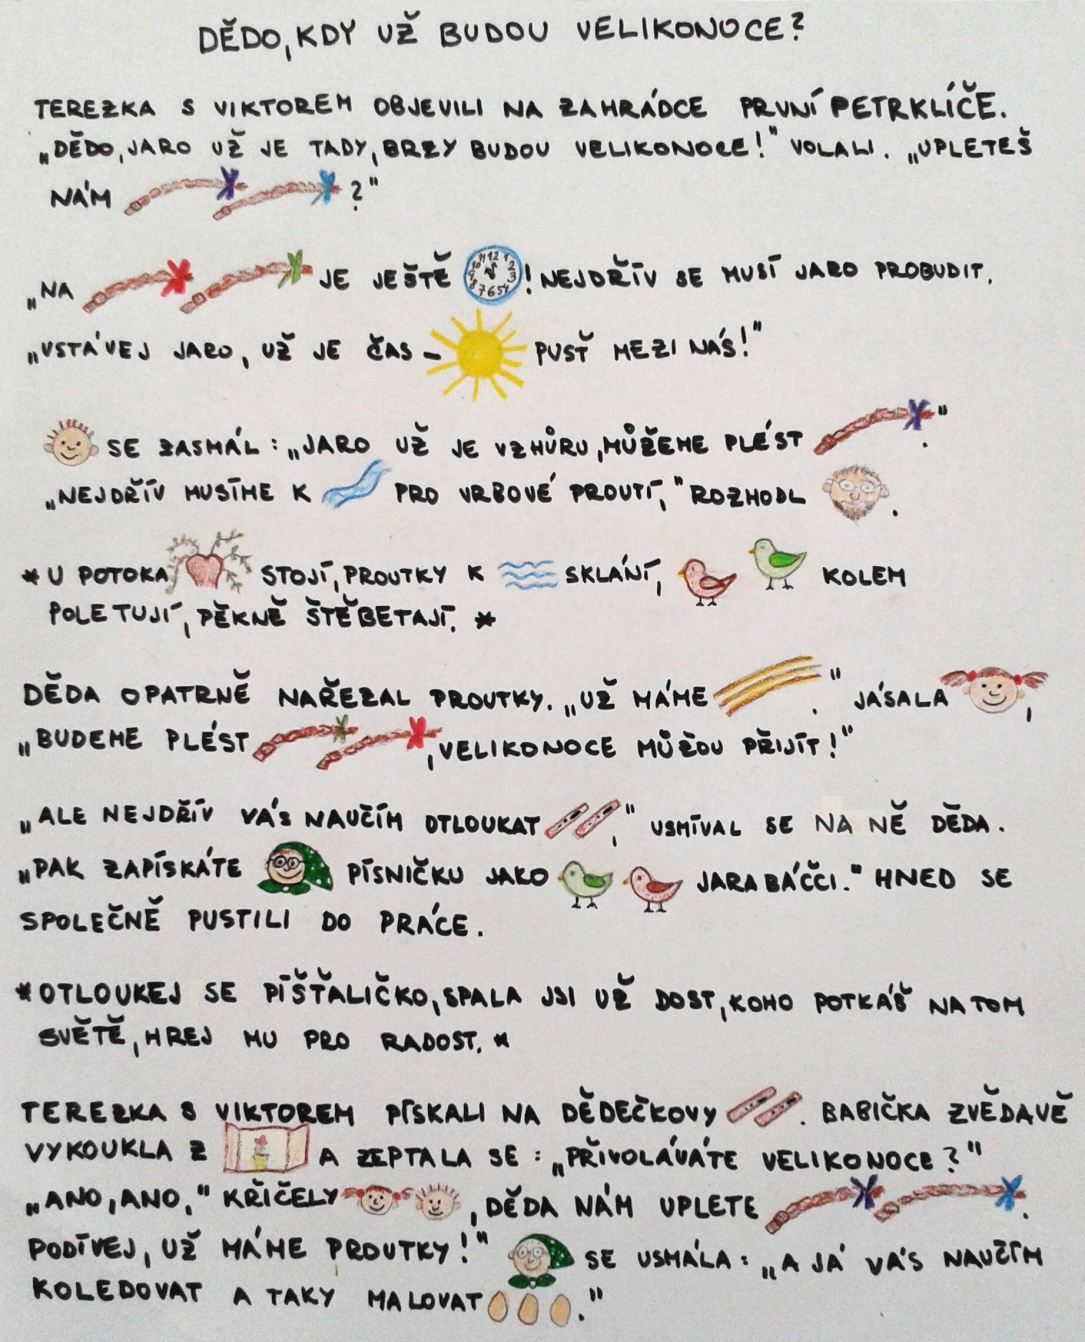 DĚDO, KDY UŽ BUDOU VELIKONOCE?
TEREZKA S VIKTOREM OBJEVILI NA ZAHRÁDCE PRVNÍ PETRKLÍČE.
„DĚDO, JARO UŽ JE TADY, BRZY BUDOU VELIKONOCE!" VOLALI. „UPLETEŠ
NÁM ?"
„NA JE JEŠTĚ 12 1 2 3 4 5 6 7 8 9 10 11 ! NEJDŘÍV SE MUSÍ JARO PROBUDIT.
„VSTÁVEJ JARO, UŽ JE ČAS – PUSŤ MEZI NÁS!"
SE ZASMÁL: „JARO UŽ JE VZHŮRU, MŮŽEME PLÉST ."
„NEJDŘÍV MUSÍME K PRO VRBOVÉ PROUTÍ," ROZHODL .
*U POTOKA STOJÍ, PROUTKY K SKLÁNÍ, KOLEM
POLETUJÍ, PĚKNĚ ŠTĚBETAJÍ. *
DĚDA OPATRNĚ NAŘEZAL PROUTKY. „UŽ MÁME ." JÁSALA ,
„BUDEME PLÉST , VELIKONOCE MŮŽOU PŘIJÍT!"
„ALE NEJDŘÍV VÁS NAUČÍM OTLOUKAT ," USMÍVAL SE NA NĚ DĚDA.
„PAK ZAPÍSKÁTE PÍSNIČKU JAKO JARABÁČČI." HNED SE
SPOLEČNĚ PUSTILI DO PRÁCE.
*OTLOUKEJ SE PÍŠŤALIČKO, SPALA JSI UŽ DOST, KOHO POTKÁŠ NA TOM
SVĚTĚ, HREJ MU PRO RADOST. *
TEREZKA S VIKTOREM PÍSKALI NA DĚDEČKOVY . BABIČKA ZVĚDAVĚ
VYKOUKLA Z A ZEPTALA SE: „PŘIVOLÁVÁTE VELIKONOCE?"
„ANO, ANO," KŘIČELY , DĚDA NÁM UPLETE .
PODÍVEJ, UŽ MÁME PROUTKY!" SE USMÁLA: „A JÁ VÁS NAUČÍM
KOLEDOVAT A TAKY MALOVAT ."